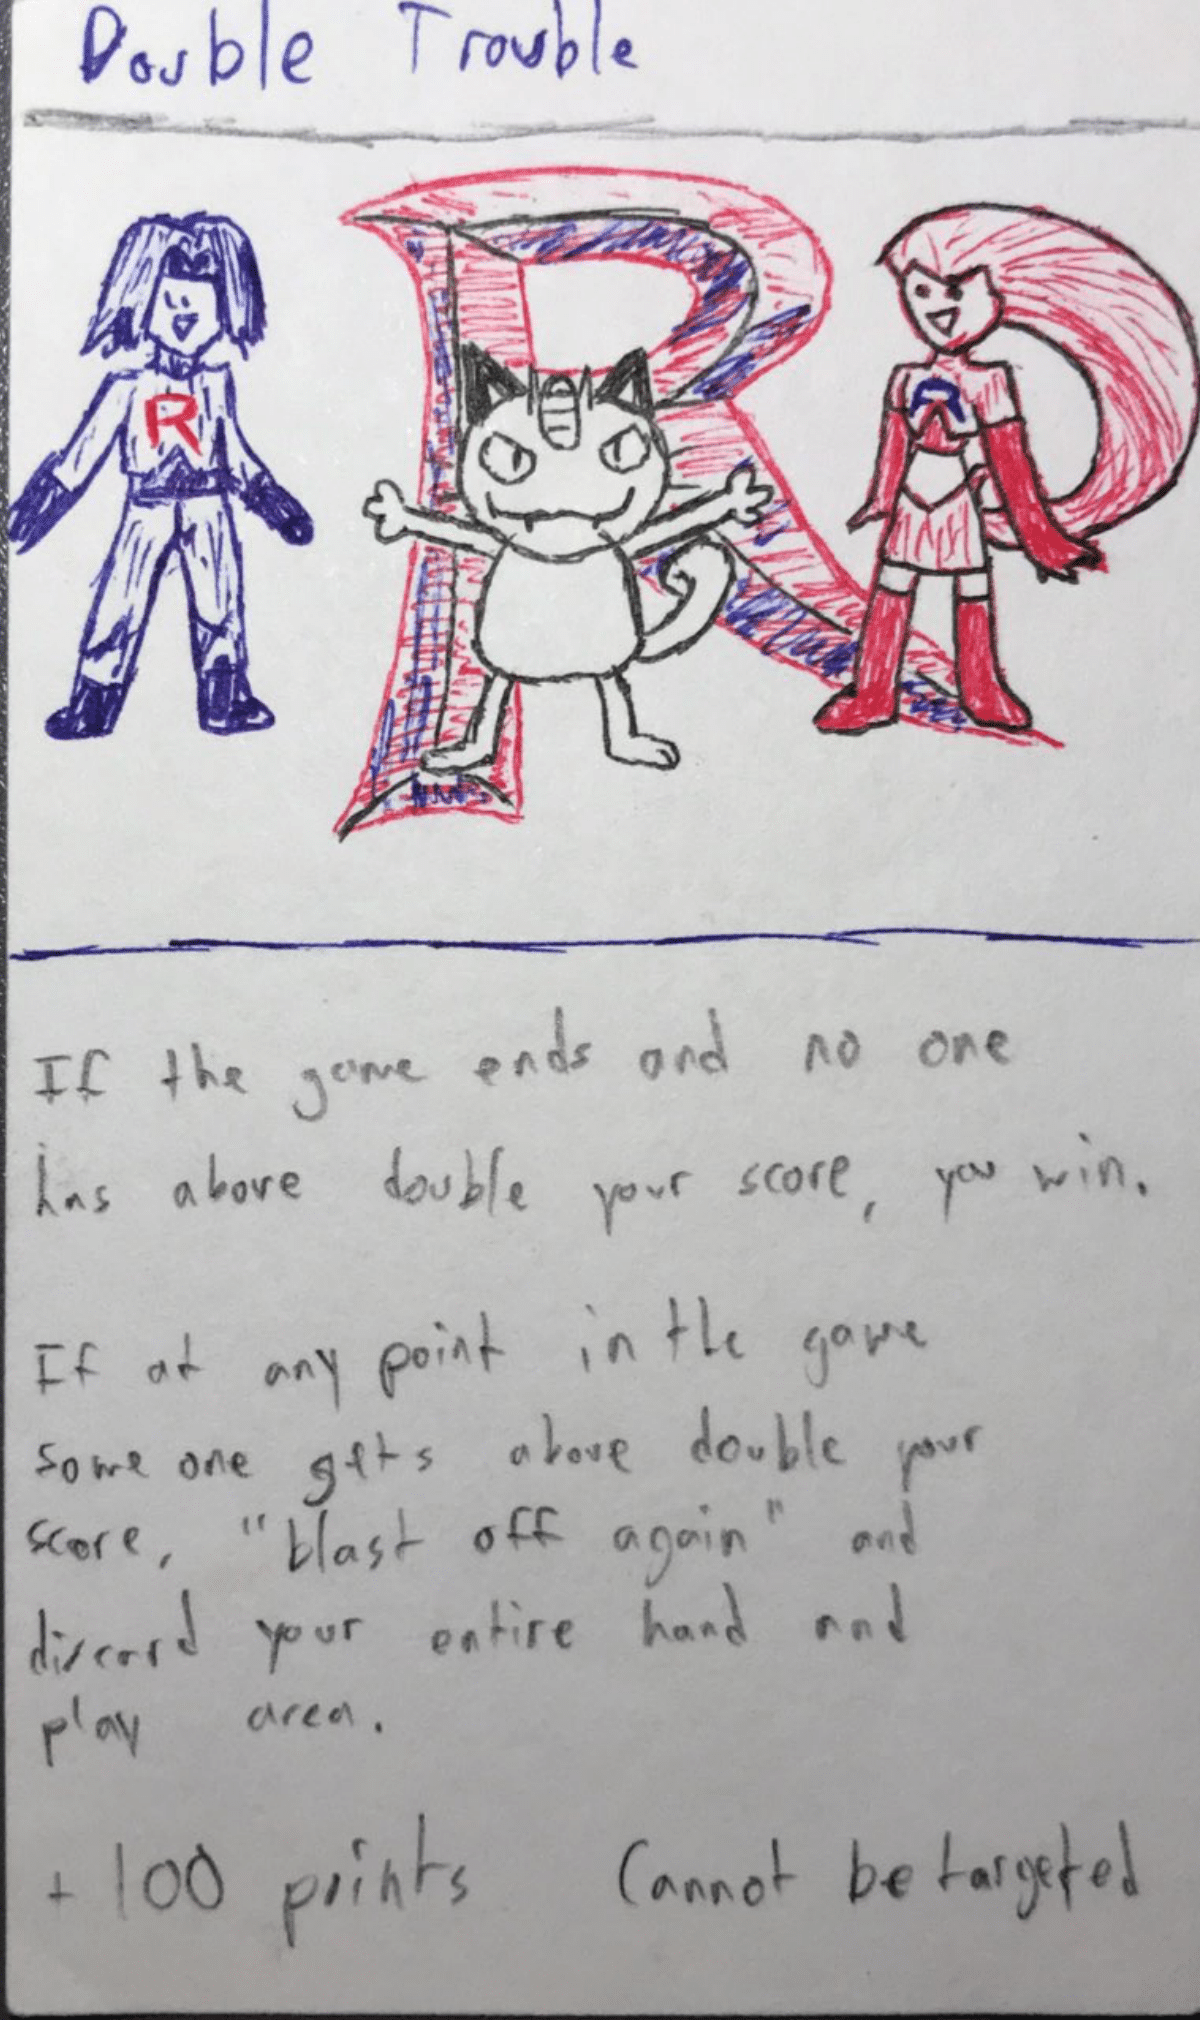 Double Trouble
R
R
R
If the game ends and no one
has above double your score, you win.
If at any point in the game
someone gets above double your
score, "blast off again" and
discard your entire hand and
play area.
+100 points Cannot be targeted